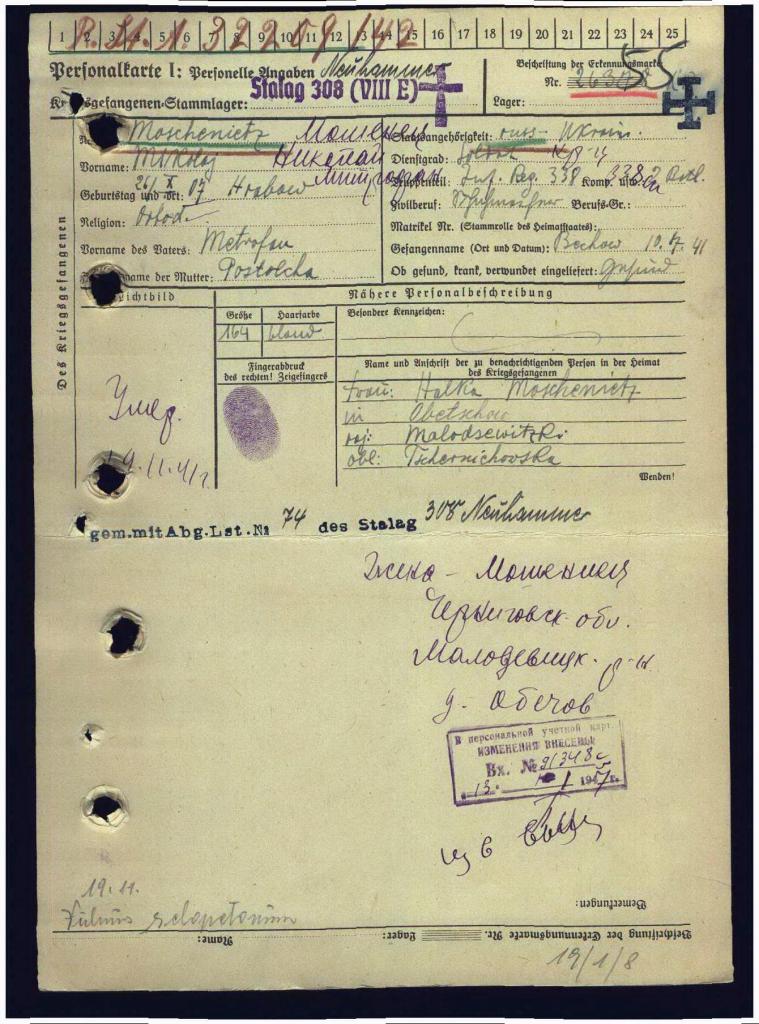 1 2 3 4 5 6 7 8 9 10 11 12 13 14 15 16 17 18 19 20 21 22 23 24 25
32209/42
Personalkarte I: Personelle Angaben
Neuhammer
Beschriftung der Erkennungsmarke
Nr. 55
Kriegsgefangenen-Stammlager: Stalag 308 (VIII E)
Lager:
Des Kriegsgefangenen
Moschenietz Мошенец
Staatsangehörigkeit: russ- Ukrain.
Vorname: Mikolaj Николай
Dienstgrad: Soldat
Митрофан
Truppenteil: Inf. Reg. 338 Komp. usw.
Geburtstag und -ort: 26/X 07 Hrabow
Zivilberuf: Berufs-Gr.:
Religion: Ortod.
Matrikel Nr. (Stammrolle des Heimatstaates):
Vorname des Vaters: Metrofan
Gefangenname (Ort und Datum): Bechow 10.
41
Familienname der Mutter: Postolcha
Ob gesund, krank, verwundet eingeliefert: Gesund
Lichtbild
Nähere Personalbeschreibung
Größe Haarfarbe Besondere Kennzeichen:
164 blond
Fingerabdruck
des rechten! Zeigefingers
Name und Anschrift der zu benachrichtigenden Person in der Heimat
des Kriegsgefangenen
Frau: Halka Moschenietz
in Obetschow
raj: Malodsewitzki
obl: Tschernichowska
Умер.
19.11.41г.
Wenden!
gem.mit Abg.Lst.№ 74 des Stalag 308 Neuhammer
Жена – Мошенец
Черниговск обл.
Малодевицк. р-н.
д. Обечов
В персональной учетной карт.
ИЗМЕНЕНИЯ ВНЕСЕНЫ
Вх. № 91348с
"13" 1 1947г.
19.11.
Vulnus sclopetarium
Bemerkungen:
Name: Lager: Beschriftung der Erkennungsmarke Nr.
19/1/8